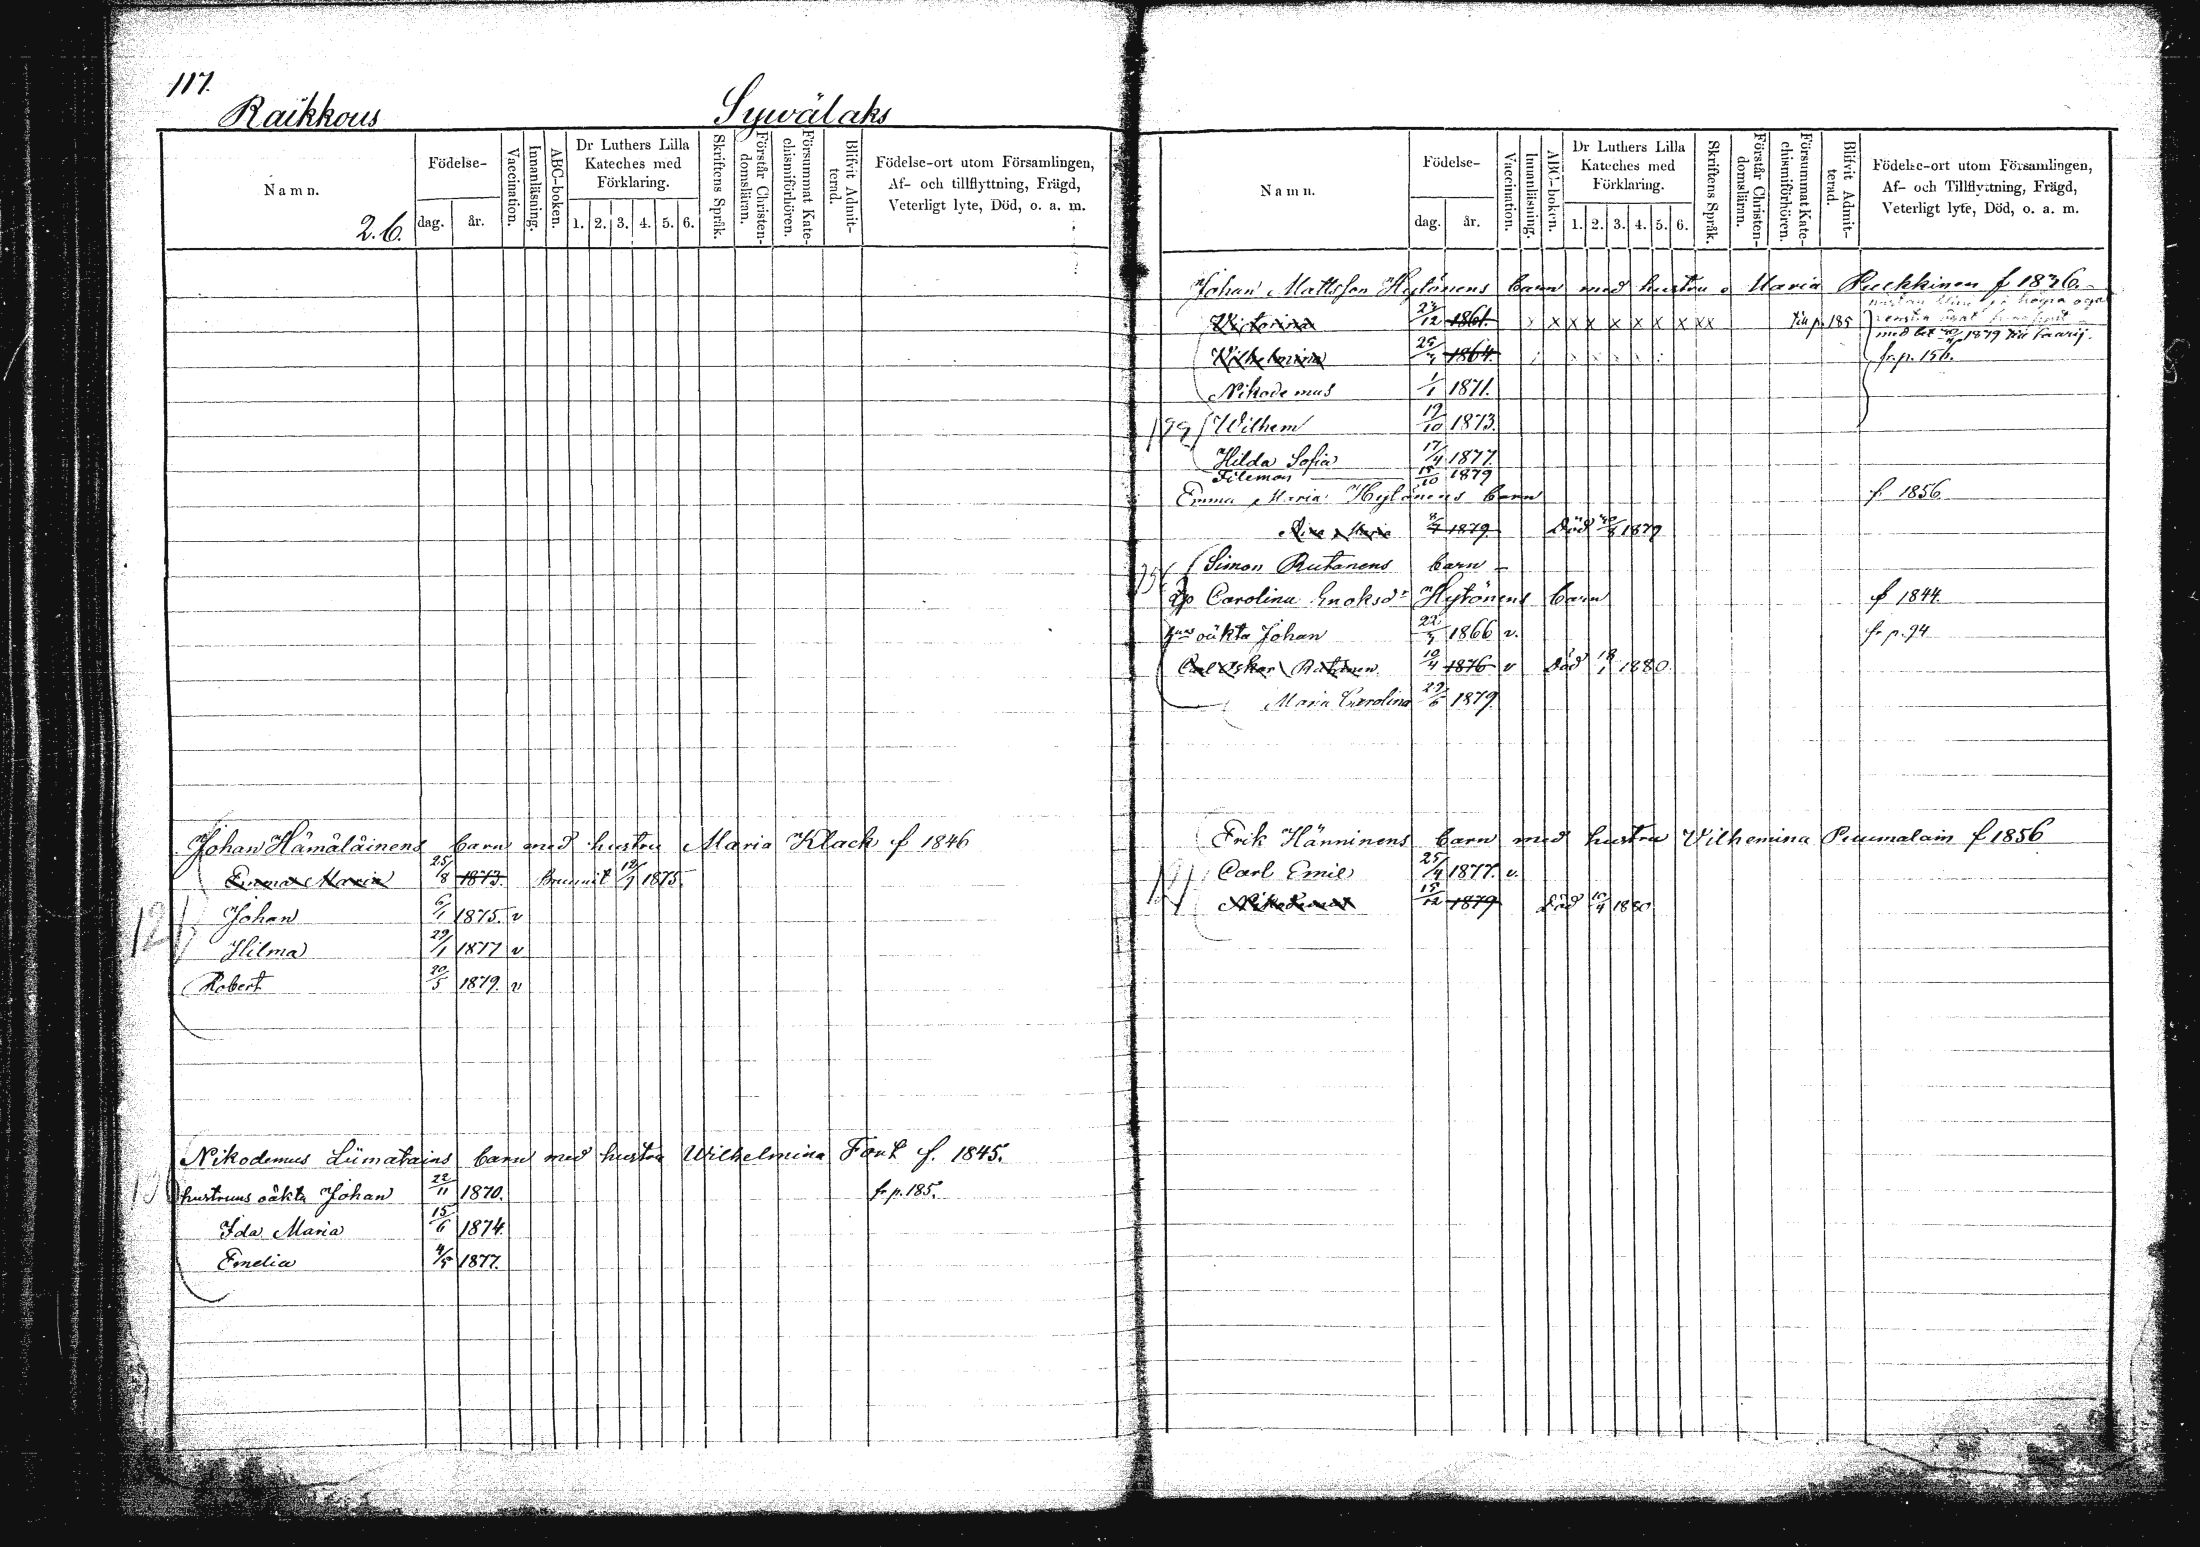 117.
Raikkous Sywälaks
Namn. Födelse- dag. år. Vaccination. Innanläsning. ABC-boken. Dr Luthers Lilla Kateches med Förklaring. 1. 2. 3. 4. 5. 6. Skriftens Språk. Förstår Christendomsläran. Försummat Katechismiförhören. Blifvit Admitterad. Födelse-ort utom Församlingen, Af- och tillflyttning, Frägd, Veterligt lyte, Död, o. a. m.
2.6.
Johan Hämäläinens barn med hustru Maria Klack f 1846
Emma Maria 25/8 1873. Brunnit 12/7 1875.
Johan 6/1 1875. v
Hilma 29/1 1877 v
Robert 20/5 1879. v
Nikodemus Liimatains barn med hustru Wilhelmina Fonk f. 1845.
hustruns oäkta Johan 22/11 1870. fr p. 185.
Ida Maria 15/6 1874.
Emelia 4/5 1877.
Namn. Födelse- dag. år. Vaccination. Innanläsning. ABC-boken. Dr Luthers Lilla Kateches med Förklaring. 1. 2. 3. 4. 5. 6. Skriftens Språk. Förstår Christendomsläran. Försummat Katechismiförhören. Blifvit Admitterad. Födelse-ort utom Församlingen, Af- och Tillflyttning, Frägd, Veterligt lyte, Död, o. a. m.
Johan Mattsson Hytönens barn med hustru Maria Puckkinen f 1836.
Victorina 23/12 1861. x x x x x x x x x x till p. 185
med bet 1879 till Saarij.
Wilhelmina 25/3 1864. fr. p. 156.
Nikodemus 1/1 1871.
Wilhem 19/10 1873.
Hilda Sofia 17/4 1877.
Filemon 15/10 1879
Emma Maria Hytönens barn f. 1856
Maria 8/7 1879. Död 1879
Simon Rutanens barn
Carolina Enoksdr Hytönens barn f 1844.
oäkta Johan 22/3 1866 v. fr p. 94
Carl Oskar Rutanen 10/4 1876 v Död 18/1 1880.
Maria Carolina 29/6 1879.
Erik Hänninens barn med hustru Vilhemina Puumalain f 1856
Carl Emil 25/4 1877. v.
Nikodemus 15/12 1879 Död 10/4 1880